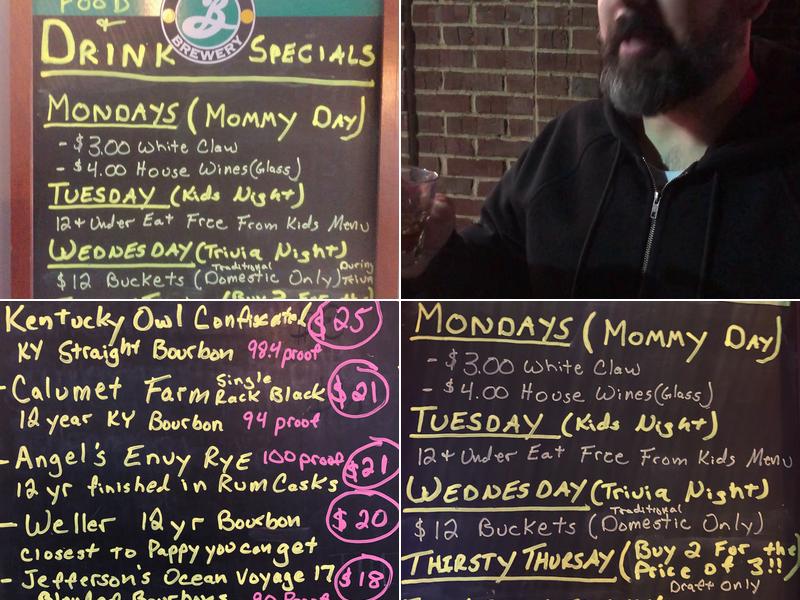 FOOD
&
DRINK SPECIALS
B
BREWERY
MONDAYS (MOMMY DAY)
- $3.00 White Claw
- $4.00 House Wines (Glass)
TUESDAY (Kids Night)
12 & Under Eat Free From Kids Menu
WEDNESDAY (Trivia Night)
$12 Buckets (Traditional Domestic Only) During
Kentucky Owl Confiscated $25
KY Straight Bourbon 98.4 proof
- Calumet Farm Single Rack Black $21
12 year KY Bourbon 94 proof
- Angel's Envy RYE 100 proof $21
12 yr finished in Rum Casks
- Weller 12 yr Bourbon $20
closest to Pappy you can get
- Jefferson's Ocean Voyage 17 $18
Blended Bourbons 90 Proof
MONDAYS (MOMMY DAY)
- $3.00 White Claw
- $4.00 House Wines (Glass)
TUESDAY (Kids Night)
12 & Under Eat Free From Kids Menu
WEDNESDAY (Trivia Night)
$12 Buckets (Traditional Domestic Only)
THIRSTY THURSAY (Buy 2 For the
Price of 3!!
Draft Only